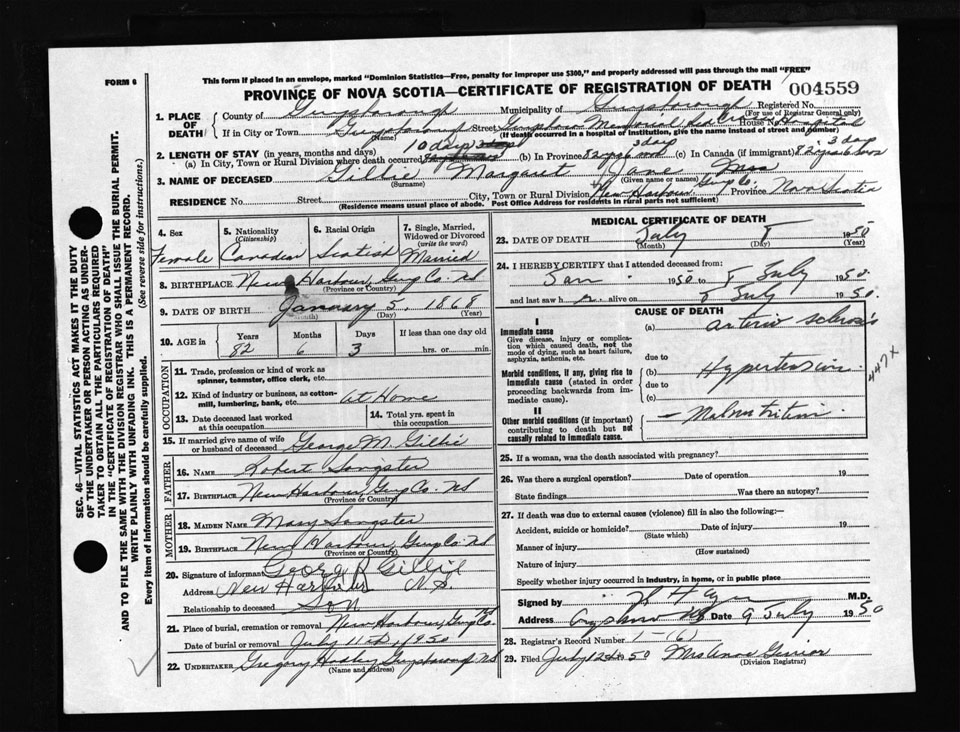 This form if placed in an envelope, marked "Dominion Statistics—Free, penalty for improper use $300," and properly addressed will pass through the mail "FREE"
FORM 6
PROVINCE OF NOVA SCOTIA—CERTIFICATE OF REGISTRATION OF DEATH 004559
1. PLACE OF DEATH
County of Guysborough Municipality of Guysborough Registered No.
(For use of Registrar General only)
If in City or Town Guysborough Street Memorial House No. Hospital
(Name) (If death occurred in a hospital of institution, give the name instead of street and number)
2. LENGTH OF STAY (in years, months and days)
(a) In City, Town or Rural Division where death occurred 10 days (b) In Province 82 yrs 6 mos 3 days (c) In Canada (if immigrant) 82 yrs 6 mos 3 days
3. NAME OF DECEASED Gillie Margaret Jane Mrs
(Surname) (Given name or names)
RESIDENCE No. Street City, Town or Rural Division New Harbour, Guys Co. Province Nova Scotia
(Residence means usual place of abode. Post Office Address for residents in rural parts not sufficient)
4. Sex Female
5. Nationality (Citizenship) Canadian
6. Racial Origin Scotish
7. Single, Married, Widowed or Divorced (write the word) Married
8. BIRTHPLACE New Harbour, Guys Co. NS
(Province or Country)
9. DATE OF BIRTH January 5, 1868
(Month) (Day) (Year)
10. AGE in Years Months Days If less than one day old
82 6 3 hrs. or min.
OCCUPATION
11. Trade, profession or kind of work as spinner, teamster, office clerk, etc.
12. Kind of industry or business, as cotton-mill, lumbering, bank, etc. at Home
13. Date deceased last worked at this occupation
14. Total yrs. spent in this occupation
15. If married give name of wife or husband of deceased George M. Gillie
FATHER
16. NAME Robert Sangster
17. BIRTHPLACE New Harbour, Guys Co. NS
(Province or Country)
MOTHER
18. MAIDEN NAME Mary Sangster
19. BIRTHPLACE New Harbour, Guys Co. NS
(Province or Country)
20. Signature of informant George R Gillie
Address New Harbour N.S.
Relationship to deceased Son
21. Place of burial, cremation or removal New Harbour, Guys Co.
Date of burial or removal July 11th, 1950
22. UNDERTAKER Gregory Hadley Guysborough NS
(Name and address)
MEDICAL CERTIFICATE OF DEATH
23. DATE OF DEATH July 8 1950
(Month) (Day) (Year)
24. I HEREBY CERTIFY that I attended deceased from:
Jan 1950 to 8 July 1950
and last saw h er alive on 8 July 1950.
CAUSE OF DEATH
I
Immediate cause
Give disease, injury or complication which caused death, not the mode of dying, such as heart failure, asphyxia, asthenia, etc.
(a) arterio sclerosis
due to
Morbid conditions, if any, giving rise to immediate cause (stated in order proceeding backwards from immediate).
(b) Hypertension
due to
(c)
447x
II
Other morbid conditions (if important) contributing to death but not causally related to immediate cause.
— Malnutrition
25. If a woman, was the death associated with pregnancy?
26. Was there a surgical operation? Date of operation 19
State findings Was there an autopsy?
27. If death was due to external causes (violence) fill in also the following:—
Accident, suicide or homicide? Date of injury 19
(State which)
Manner of injury
(How sustained)
Nature of injury
Specify whether injury occurred in industry, in home, or in public place
Signed by M.D.
Address Date 9 July 1950
28. Registrar's Record Number 1-(6)
29. Filed July 12th 1950 Mrs
(Division Registrar)
SEC. 46—VITAL STATISTICS ACT MAKES IT THE DUTY
OF THE UNDERTAKER OR PERSON ACTING AS UNDERTAKER TO OBTAIN ALL THE PARTICULARS REQUIRED
IN THE "CERTIFICATE OF REGISTRATION OF DEATH"
AND TO FILE THE SAME WITH THE DIVISION REGISTRAR WHO SHALL ISSUE THE BURIAL PERMIT.
WRITE PLAINLY WITH UNFADING INK. THIS IS A PERMANENT RECORD.
Every item of Information should be carefully supplied. (See reverse side for instructions.)